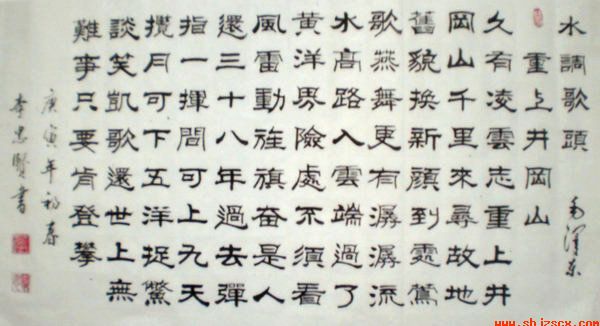 水調歌頭 毛澤東
重上井岡山
久有凌雲志重上井
岡山千里來尋故地
舊貌換新顏到處鶯
歌燕舞更有潺潺流
水高路入雲端過了
黃洋界險處不須看
風雷動旌旗奮是人
還三十八年過去彈
指一揮間可上九天
攬月可下五洋捉鱉
談笑凱歌還世上無
難事只要肯登攀
庚寅年初春
李忠賢書
www.shjzscx.com